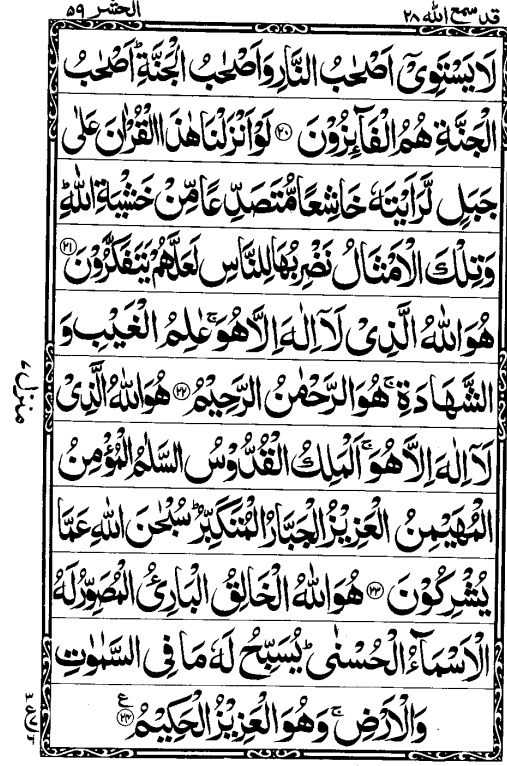 قد سمع الله ٢٨ الحشر ٥٩
لَا يَسْتَوِىْٓ اَصْحٰبُ النَّارِ وَاَصْحٰبُ الْجَنَّةِ ؕ اَصْحٰبُ
الْجَنَّةِ هُمُ الْفَآئِزُوْنَ ﴿۲۰﴾ لَوْ اَنْزَلْنَا هٰذَا الْقُرْاٰنَ عَلٰى
جَبَلٍ لَّرَاَيْتَهٗ خَاشِعًا مُّتَصَدِّعًا مِّنْ خَشْيَةِ اللّٰهِ ؕ
وَتِلْكَ الْاَمْثَالُ نَضْرِبُهَا لِلنَّاسِ لَعَلَّهُمْ يَتَفَكَّرُوْنَ ﴿۲۱﴾
هُوَ اللّٰهُ الَّذِىْ لَآ اِلٰهَ اِلَّا هُوَ ۚ عٰلِمُ الْغَيْبِ وَ
الشَّهَادَةِ ۚ هُوَ الرَّحْمٰنُ الرَّحِيْمُ ﴿۲۲﴾ هُوَ اللّٰهُ الَّذِىْ
لَآ اِلٰهَ اِلَّا هُوَ ۚ اَلْمَلِكُ الْقُدُّوْسُ السَّلٰمُ الْمُؤْمِنُ
الْمُهَيْمِنُ الْعَزِيْزُ الْجَبَّارُ الْمُتَكَبِّرُ ؕ سُبْحٰنَ اللّٰهِ عَمَّا
يُشْرِكُوْنَ ﴿۲۳﴾ هُوَ اللّٰهُ الْخَالِقُ الْبَارِئُ الْمُصَوِّرُ لَهُ
الْاَسْمَآءُ الْحُسْنٰى ؕ يُسَبِّحُ لَهٗ مَا فِى السَّمٰوٰتِ
وَالْاَرْضِ ۚ وَهُوَ الْعَزِيْزُ الْحَكِيْمُ ﴿۲۴﴾ ع
منزل ۷